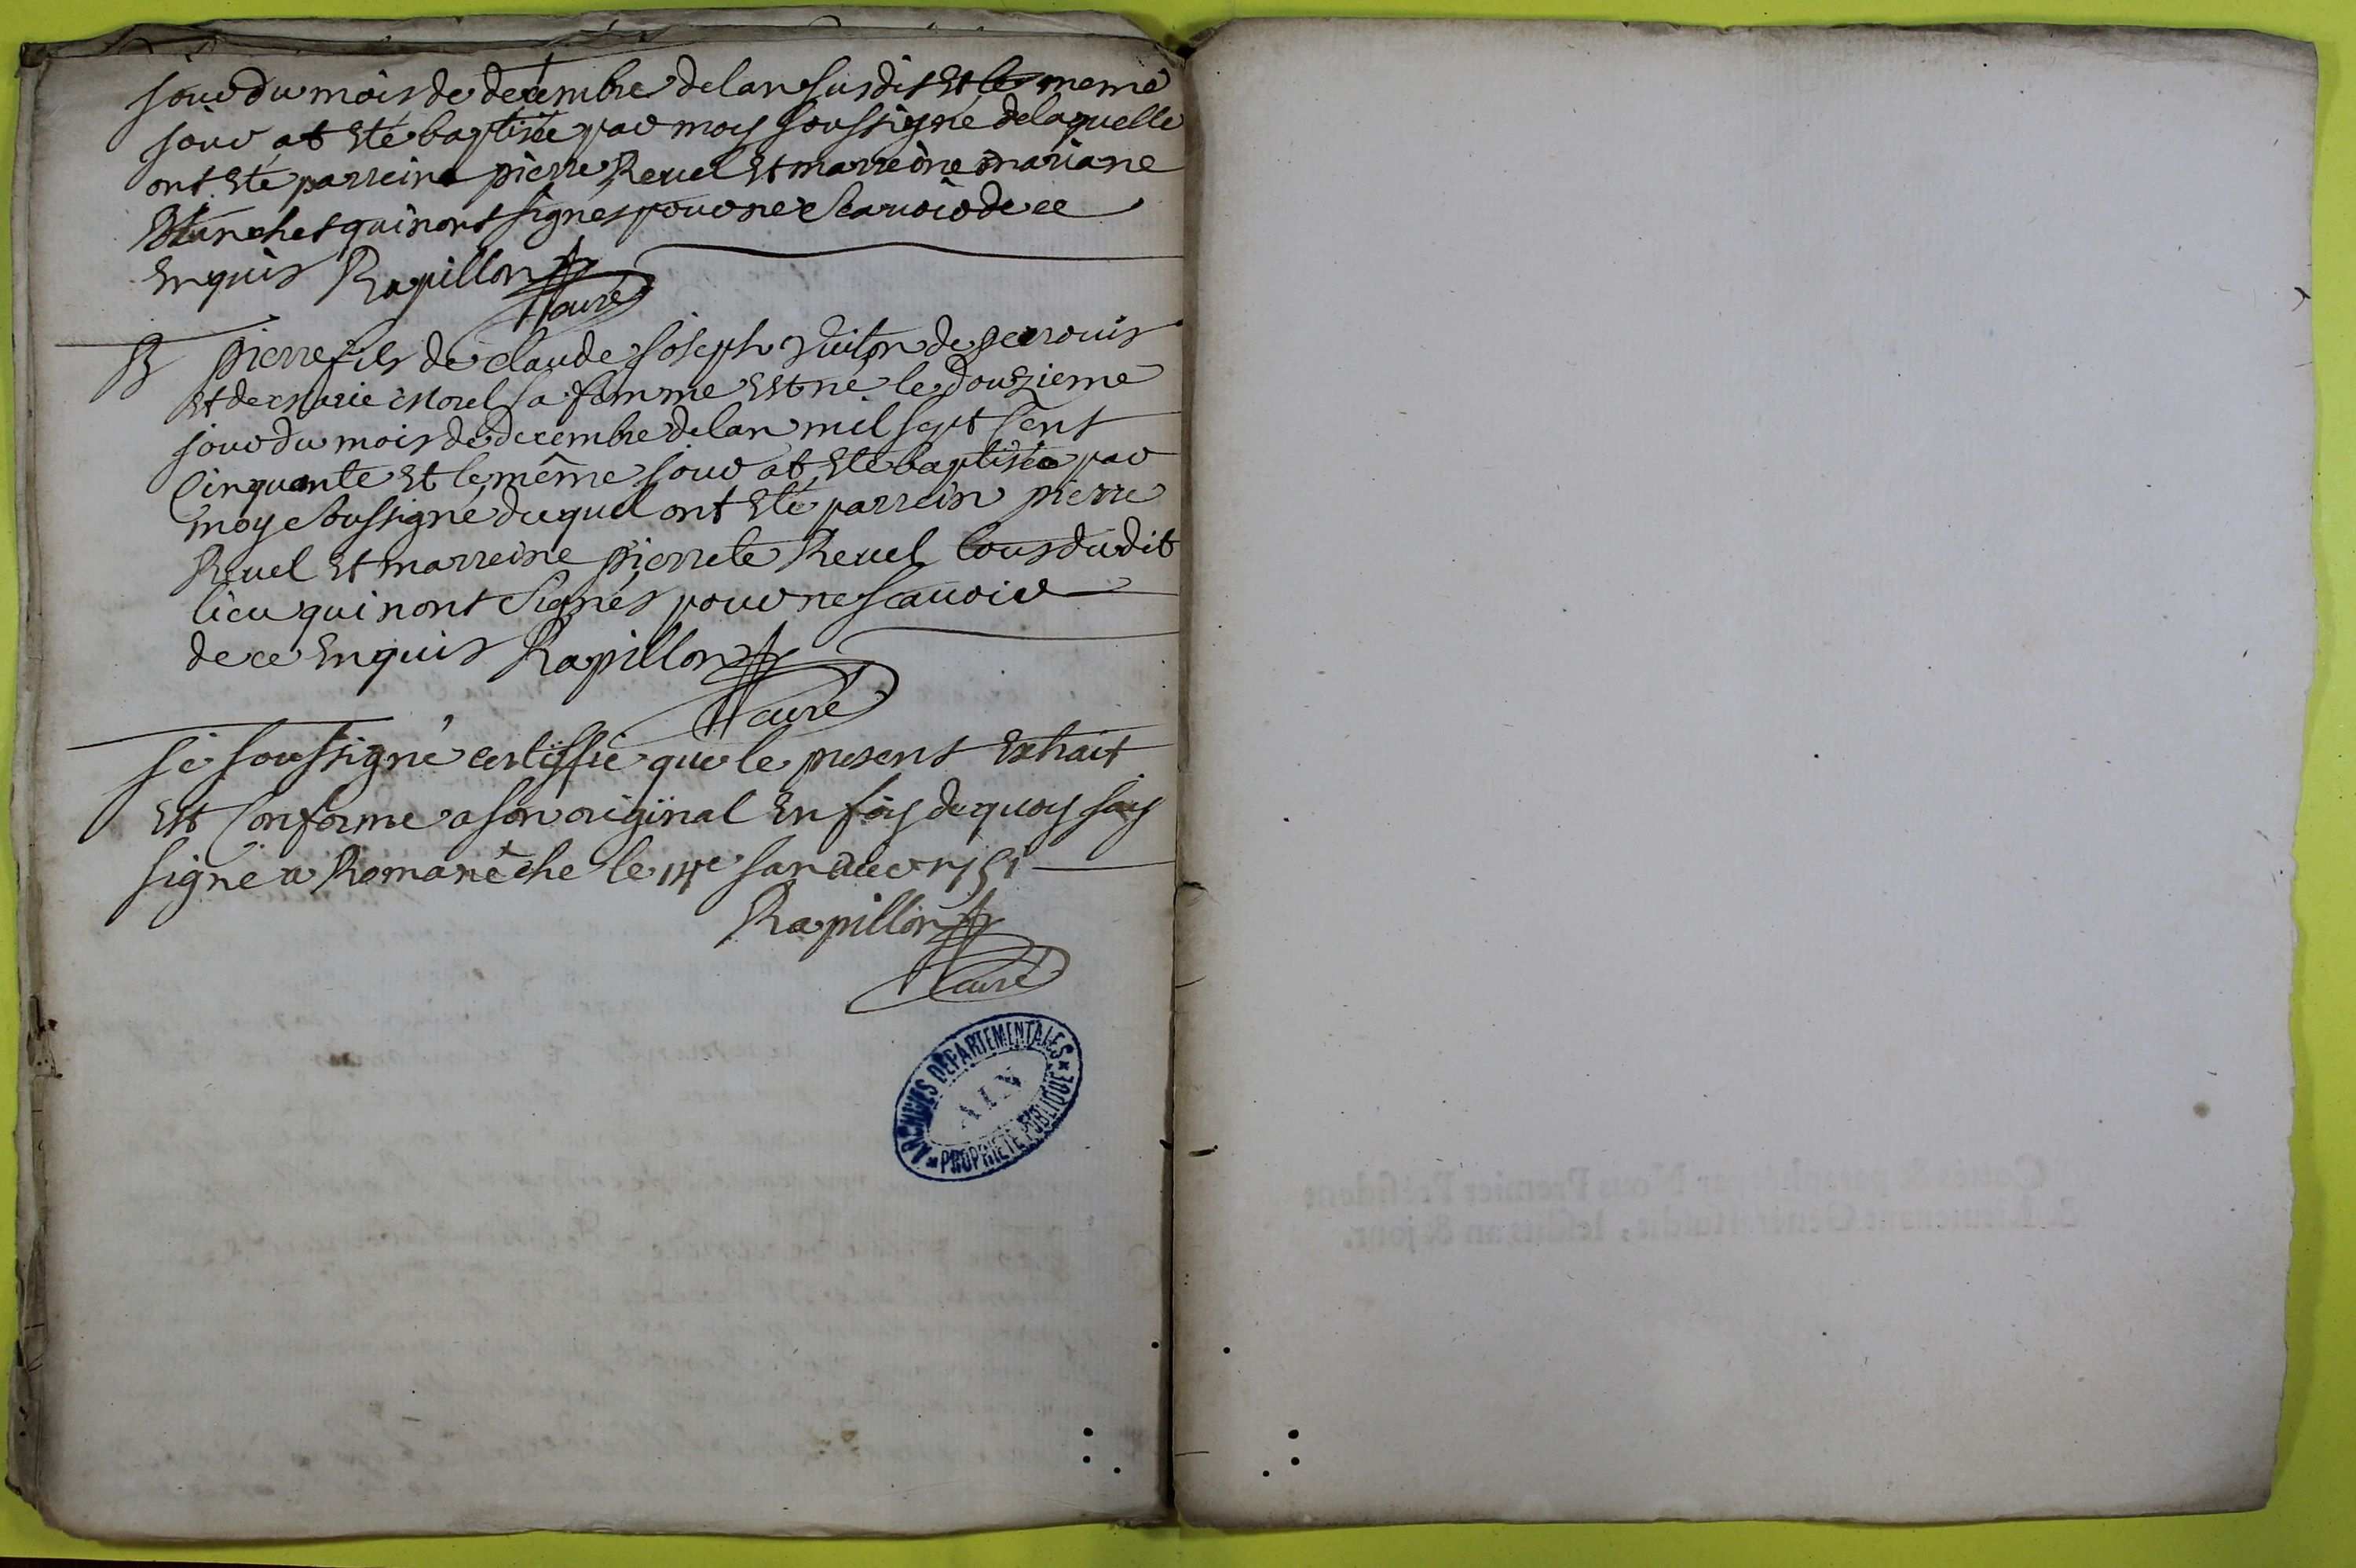 jour du mois de decembre de lan susdit et le meme
jour at eté baptisée par moy soussigné de laquelle
ont eté parrein pierre Revel et marreine mariane
Blanchet qui nont signés pour ne scavoir de ce
enquis Rapillon
curé
B pierre fils de claude joseph de
et de marie morel sa femme est né le douzieme
jour du mois de decembre de lan mil sept cent
cinquante et le même jour at eté baptisée par
moy soussigné duquel ont eté parrein pierre
Revel et marreine pierrete Revel tous dudit
lieu qui nont signés pour ne scavoir
de ce enquis Rapillon
curé
je soussigné certiffie que le present extrait
est conforme a son original en foy de quoy jay
signé a Romanêche le 14e janvier 1751
Rapillon
curé
ARCHIVES DÉPARTEMENTALES
AIN
PROPRIÉTÉ PUBLIQUE